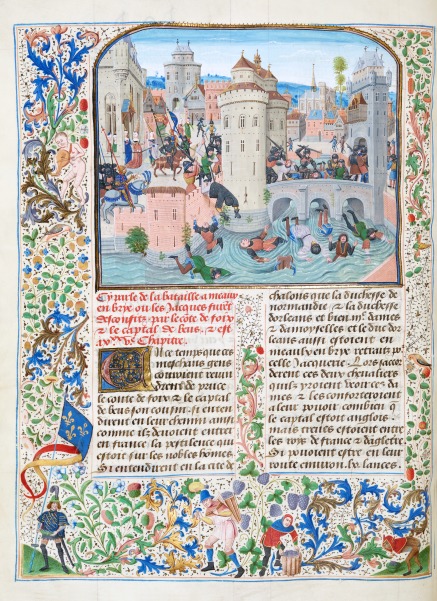 Cy parle de la bataille a meaux
en brye ou les Jacques furēt
desconfits par le cōte de foix
& le captal de beus, & est
Chapitre.
En ce temps que ces
meschans gens
couroient revin
drent de pruce
le conte de foix & le captal
de beus son cousin. si enten
dirent en leur chemin ainsi
comme ilz devoient entrer
en france. la pestilence qui
estoit sur les nobles homes
Si entendirent en la cite de
chalons que la duchesse de
normandie & la duchesse
dorleans et bien iijc. dames
& damoyselles et le duc dor
leans aussi estoient en
meaulx en brye
celle Jacquerie. Lors
derent ces deux
quilz yroient veoir ces da
mes & les conforteroient
a leur povoir combien q̄
le captal estoit anglois.
mais treves estoient entre
les roys de france & dāgleterre
Si povoient estre en leur
route environ lx lances